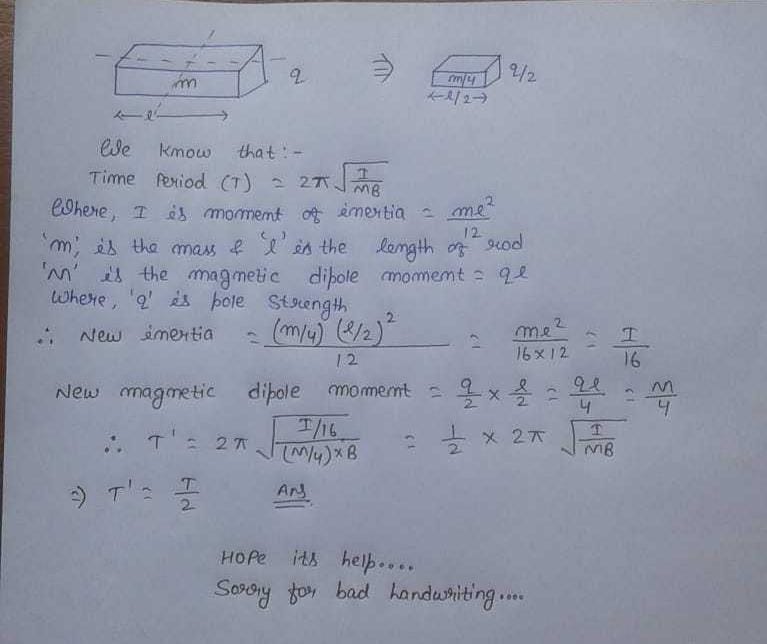 m q ⇒ m/4 q/2
←l→ ←l/2→
We know that:-
Time Period (T) = 2π√(I/MB)
Where, I is moment of inertia = ml²/12
'm', is the mass & 'l' is the length of rod
'M' is the magnetic dipole moment = ql
Where, 'q' is pole Strength
∴ New inertia = (m/4) (l/2)²/12 = ml²/16×12 = I/16
New magnetic dipole moment = q/2 × l/2 = ql/4 = M/4
∴ T' = 2π√(I/16/(M/4)×B) = 1/2 × 2π√(I/MB)
⇒ T' = T/2 Ans
HOPE its help....
Sorry for bad handwriting....